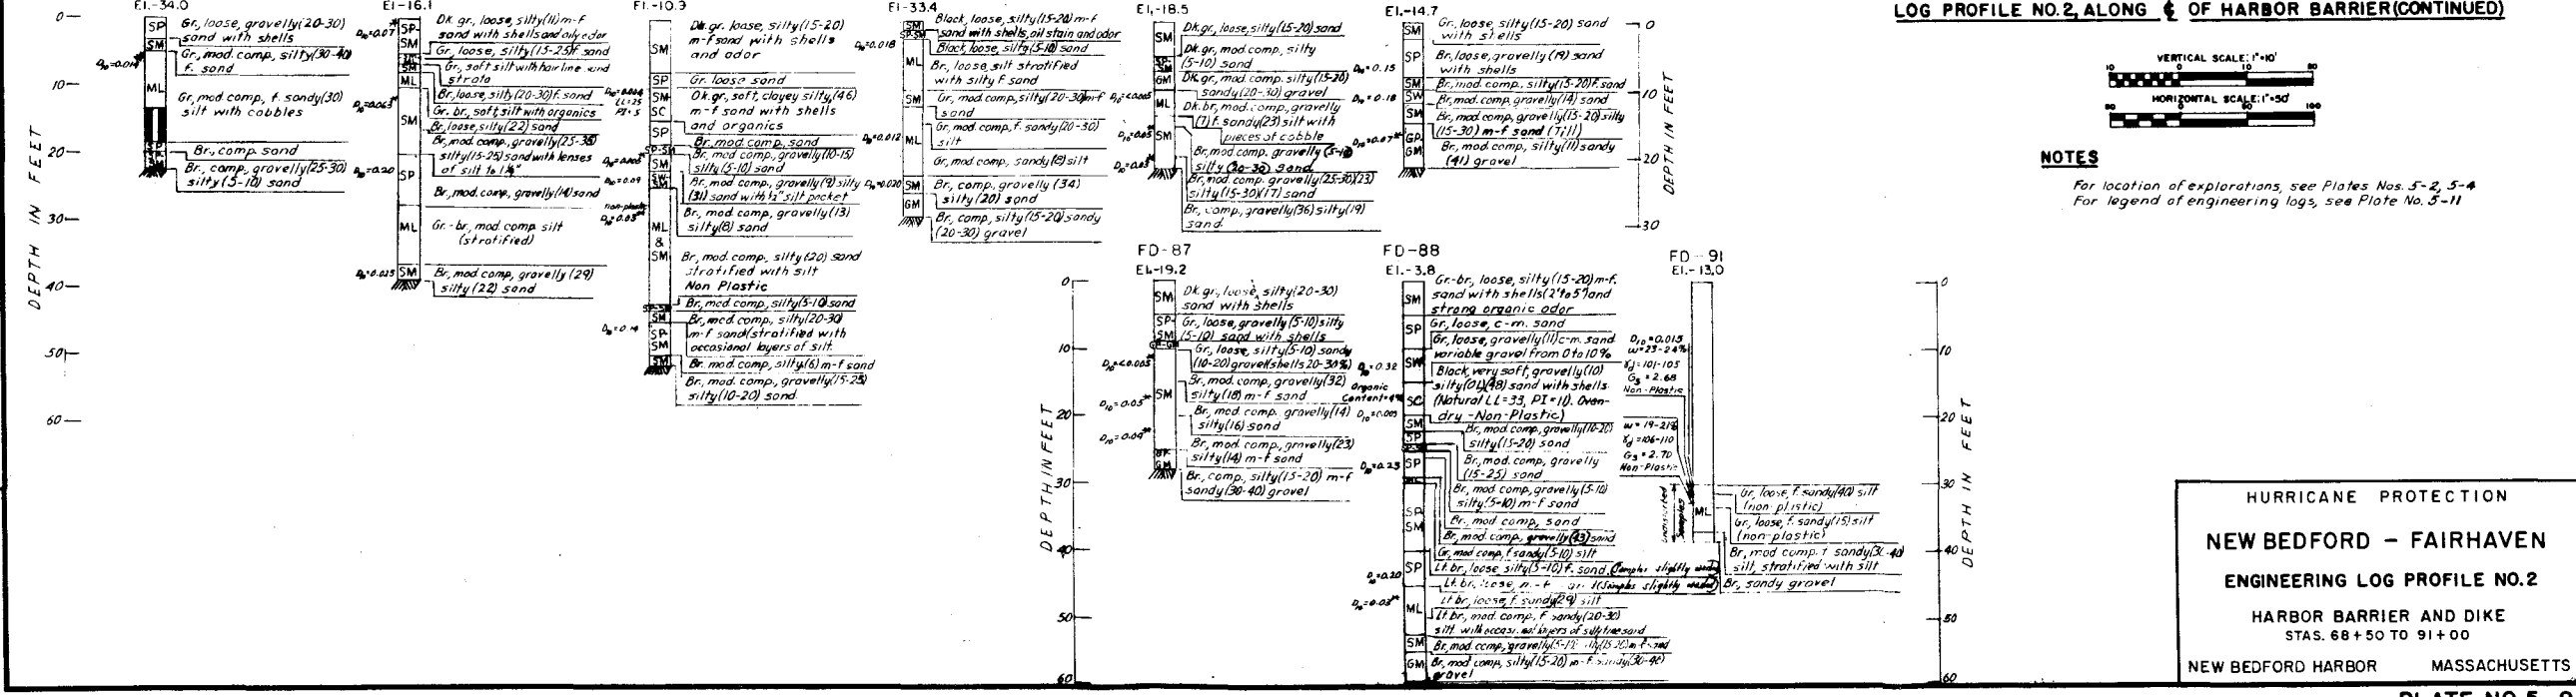 LOG PROFILE NO.2, ALONG ℄ OF HARBOR BARRIER (CONTINUED)
VERTICAL SCALE: 1"=10'
10 0 10 20
HORIZONTAL SCALE: 1"=50'
50 0 50 100
NOTES
For location of explorations, see Plates Nos. 5-2, 5-4
For legend of engineering logs, see Plate No. 5-11
DEPTH IN FEET
0
10
20
30
40
50
60
El.-34.0
SP
SM
ML
D10=0.014
Gr., loose, gravelly (20-30)
sand with shells
Gr., mod. comp., silty (30-40)
f. sand
Gr., mod. comp., f. sandy (30)
silt with cobbles
Br., comp. sand
Br., comp., gravelly (25-30)
silty (5-10) sand
El-16.1
D10=0.07
SP-
SM
ML
SM
SP
ML
SM
D10=0.063
D10=0.20
D10=0.025
Dk. gr., loose, silty (11) m-f
sand with shells and oily odor
Gr., loose, silty (15-25) f. sand
Gr., soft silt with hairline sand
strata
Br., loose, silty (20-30) f. sand
Gr. br., soft, silt with organics
Br., loose, silty (22) sand
Br., mod. comp., gravelly (25-35)
silty (15-25) sand with lenses
of silt to 1/4"
Br., mod. comp., gravelly (14) sand
Gr.-br., mod. comp. silt
(stratified)
Br., mod. comp., gravelly (29)
silty (22) sand
El.-10.9
SM
SP
SM
SC
SP
SP-SM
SM
SW
SM
ML
&
SM
SP-SM
SM
SP-
SM
SM
LL=25
PI=5
D10=0.09
non-plastic
D10=0.03
D10=0.14
Dk. gr. loose, silty (15-20)
m-f sand with shells
and odor
Gr. loose sand
Dk. gr., soft, clayey silty, (46)
m-f sand with shells
and organics
Br., mod. comp., sand
Br., mod. comp., gravelly (10-15)
silty (5-10) sand
Br., mod. comp., gravelly (9) silty
(31) sand with 1/2" silt pocket
Br., mod. comp., gravelly (13)
silty (8) sand
Br., mod. comp., silty (20) sand
stratified with silt
Non Plastic
Br., mod. comp., silty (5-10) sand
Br., mod. comp., silty (20-30)
m-f sand (stratified with
occasional layers of silt.
Br. mod. comp., silty (6) m-f sand
Br., mod. comp., gravelly (15-25)
silty (10-20) sand
El-33.4
SM
SP-SM
ML
SM
ML
SM
GM
D10=0.018
D10=0.012
D10=0.020
Black, loose, silty (15-20) m-f
sand with shells, oil stain and odor
Black, loose, silty (5-10) sand
Br., loose, silt stratified
with silty f. sand
Gr., mod. comp., silty (20-30) m-f
sand
Gr., mod. comp., f. sandy (20-30)
silt
Gr., mod. comp., sandy (8) silt
Br., comp., gravelly (34)
silty (20) sand
Br., comp., silty (15-20) sandy
(20-30) gravel
El.-18.5
SM
SP-
SM
GM
ML
SM
D10=<0.005
D10=0.05
D10=0.03
Dk. gr., loose, silty (15-20) sand
Dk. gr., mod. comp., silty
(5-10) sand
Dk gr., mod. comp. silty (15-20)
sandy (20-30) gravel
Dk. br., mod. comp., gravelly
(7) f. sandy (23) silt with
pieces of cobble
Br., mod. comp. gravelly (5-10)
silty (20-30) sand
Br., mod. comp. gravelly (25-30) (23)
silty (15-30) (17) sand
Br., comp., gravelly (36) silty (19)
sand.
El.-14.7
SM
SP
SM
SW
SM
GP-
GM
D10=0.15
D10=0.18
D10=0.07
Gr., loose, silty (15-20) sand
with shells
Br., loose, gravelly (19) sand
with shells
Br., mod. comp., silty (15-20) f. sand
Br., mod. comp. gravelly (14) sand
Br., mod. comp., gravelly (15-20) silty
(15-30) m-f sand (Till)
Br., mod. comp., silty (11) sandy
(41) gravel
0
10
20
30
DEPTH IN FEET
FD-87
El.-19.2
DEPTH IN FEET
0
10
20
30
40
50
60
SM
SP-
SM
SM
GM
D10=<0.005
D10=0.05
D10=0.04
Dk. gr., loose, silty (20-30)
sand with shells
Gr., loose, gravelly (5-10) silty
(5-10) sand with shells
Gr., loose, silty (5-10) sandy
(10-20) gravel (shells 20-30%)
Br., mod. comp., gravelly (32)
silty (18) m-f sand
Br., mod. comp. gravelly (14)
silty (16) sand
Br., mod. comp., gravelly (23)
silty (14) m-f sand
Br., comp., silty (15-20) m-f
sandy (30-40) gravel
FD-88
El.-3.8
SM
SP
SW
SC
SM
SP
SP
SP-
SM
SP
ML
SM
GM
D10=0.32
Organic
Content=4%
D10=0.005
D10=0.25
D10=0.20
D10=0.03
Gr.-br., loose, silty (15-20) m-f.
sand with shells (2" to 5") and
strong organic odor
Gr., loose, c-m. sand
Gr., loose, gravelly (11) c-m. sand
variable gravel from 0 to 10%
Black, very soft, gravelly (10)
silty (OL) (48) sand with shells.
(Natural LL=33, PI=11. Oven-
dry-Non-Plastic)
Br., mod. comp., gravelly (10-20)
silty (15-20) sand
Br., mod. comp., gravelly
(15-25) sand
Br., mod. comp., gravelly (5-10)
silty (5-10) m-f sand
Br., mod. comp., sand
Br., mod. comp., gravelly (43) sand
Gr., mod. comp., f. sandy (5-10) silt
Lt. br., loose, silty (5-10) f. sand. (Samples slightly washed)
Lt. br., loose, m.-f. (Samples slightly washed)
Lt. br., loose, f. sandy (29) silt
Lt. br., mod. comp., f. sandy (20-30)
silt with occasional layers of silty fine sand
Br., mod. comp., gravelly (5-10) silty (15-20) m-f sand
Br., mod. comp., silty (15-20) m-f. sandy (30-40)
gravel
FD-91
El.-13.0
D10=0.015
w=23-24%
γd=101-105
Gs=2.68
Non-Plastic
w=19-21%
γd=106-110
Gs=2.70
Non-Plastic
Undisturbed
Samples
ML
Gr., loose, f. sandy (40) silt
(non-plastic)
Gr., loose, f. sandy (15) silt
(non-plastic)
Br., mod. comp. f. sandy (30-40)
silt, stratified with silt
Br., sandy gravel
0
10
20
30
40
50
60
DEPTH IN FEET
HURRICANE PROTECTION
NEW BEDFORD – FAIRHAVEN
ENGINEERING LOG PROFILE NO.2
HARBOR BARRIER AND DIKE
STAS. 68+50 TO 91+00
NEW BEDFORD HARBOR MASSACHUSETTS